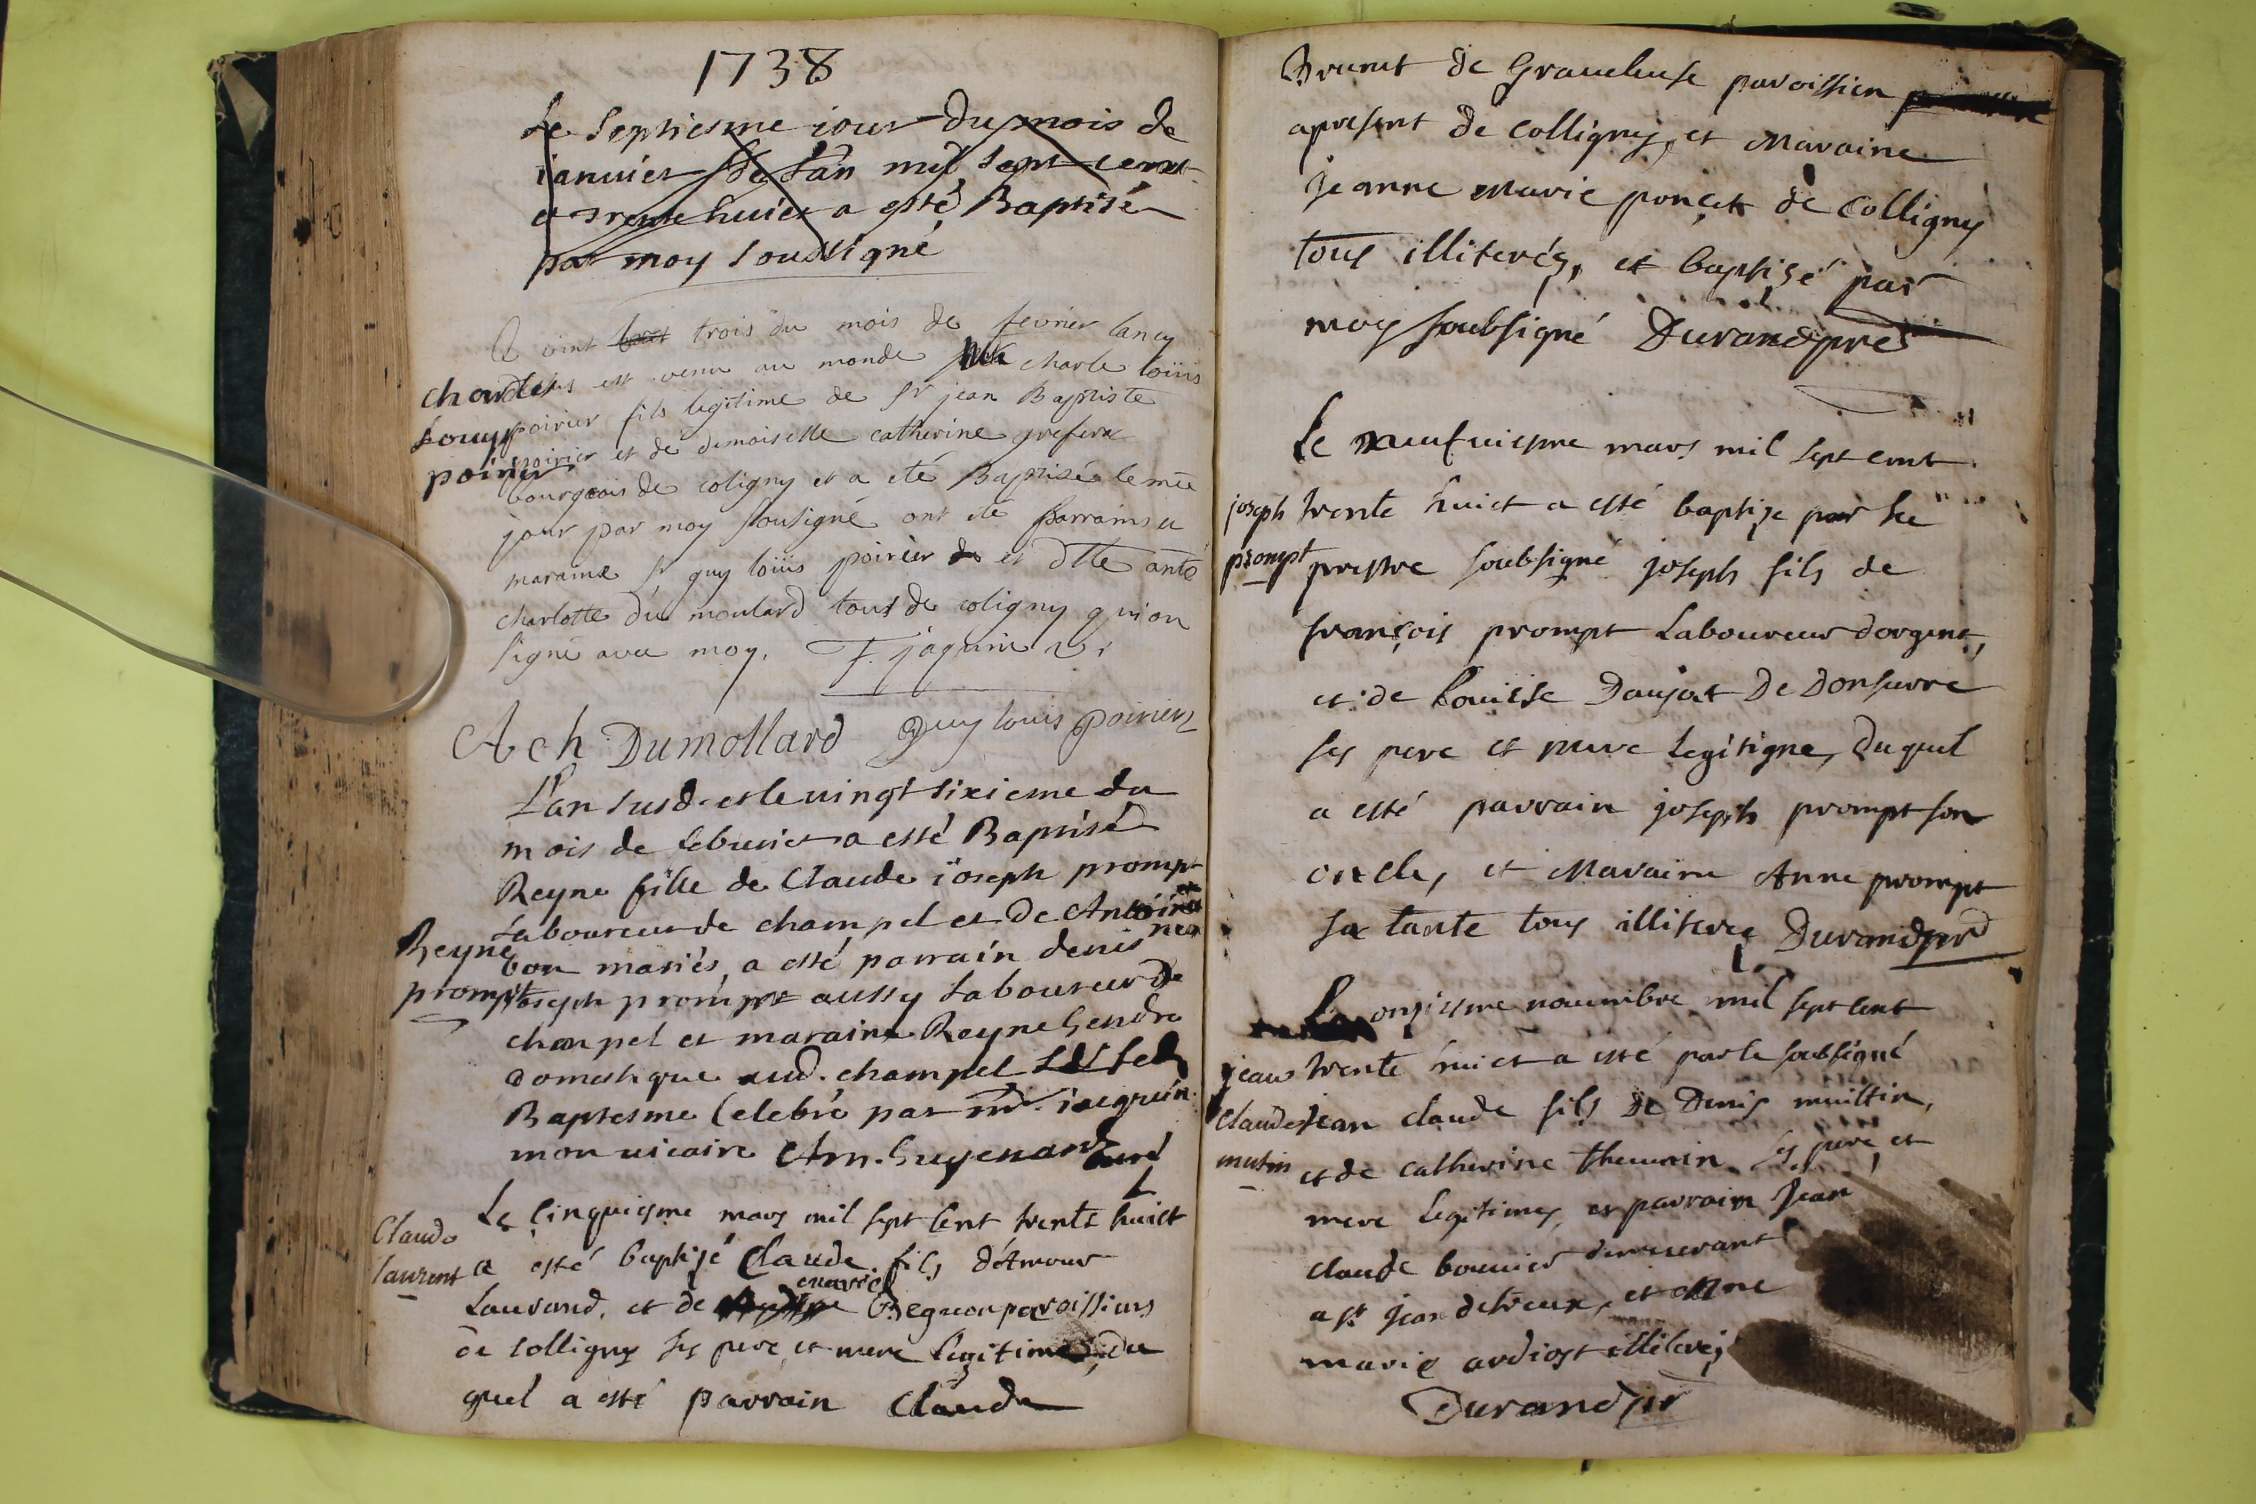 1738
Le septiesme jour du mois de
ianuier de Lan mil sept cent
et trente huict a esté Baptisé
par moy soussigné
Charles
Louys
poirier
Le vint trois du mois de fevrier lan cy
dessus est venu au monde charle loüis
poirier fils legitime de sr jean Baptiste
poirier et de demoiselle catherine
bourgeois de coligny et a eté Baptisé le mē
jour par moy sousigné ont eté parrains et
maraine sr guy loüis poirier et dlle
charlotte du moulard tous de coligny qui on
signé avec moy. F. jaquin vi
A ch Dumollard guy louis poirier
L'an susd. et le uingt sixieme du
mois de feburier a esté Baptisé
Reyne fille de Claude ioseph prompt
Laboureur de champel et de Antoinea
Reyne
prompt
bon mariés, a esté parrain denis
ioseph prompt aussy Laboureur de
champel et maraine Reyne Gendre
domestique aud. champel
Baptesme Celebré par mr. iaquin
mon uicaire Guyenard curé
Claude
laurent
Le cinquiesme mars mil sept cent trente huict
a esté baptisé Claude fils d'Amour
marie
Laurand, et de Begueu paroissiens
de colligny ses pere et mere legitime, du
quel a esté parrain Claude
Brunet de Graueleuse paroissien
apresent de colligny, et Maraine
jeanne marie ponçet de Colligny
tous illiterés, et baptisé par
moy soubsigné Durand pre
Le neufuiesme mars mil sept cent
joseph
prompt
trente huict a esté baptize par le
prestre soubsigné joseph fils de
françois prompt Laboureur dorgent,
et de Louisse Daujat De Donsurre
ses pere et mere legitigne, duquel
a esté parrain joseph prompt son
oncle, et Maraine Anne prompt
sa tante tous illitere Durand pr
Le onziesme nouembre mil sept cent
jean
Claude
mutin
trente huict a esté par le soubsigné
jean claude fils De Denis muittin,
et de catherine theuenin ses pere et
mere legitimes, et parrain Jean
claude bouuier demeurant
a st jean detreux, et Anne
marie ardiost illiterés
Durand pr